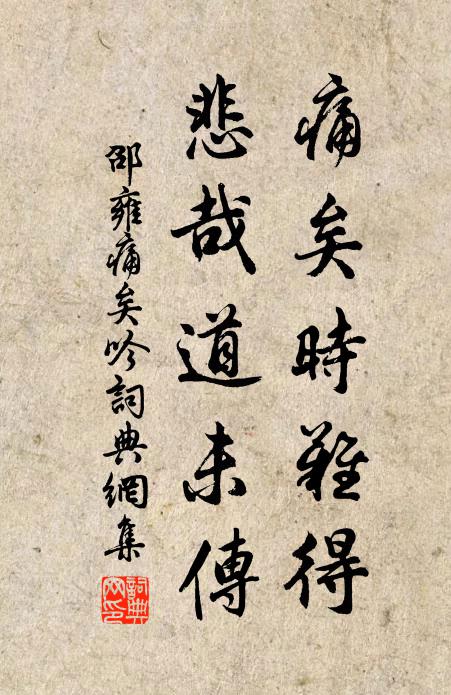 痛矣時難得
悲哉道未傳
邵雍痛矣吟詞典網集
詞典網印